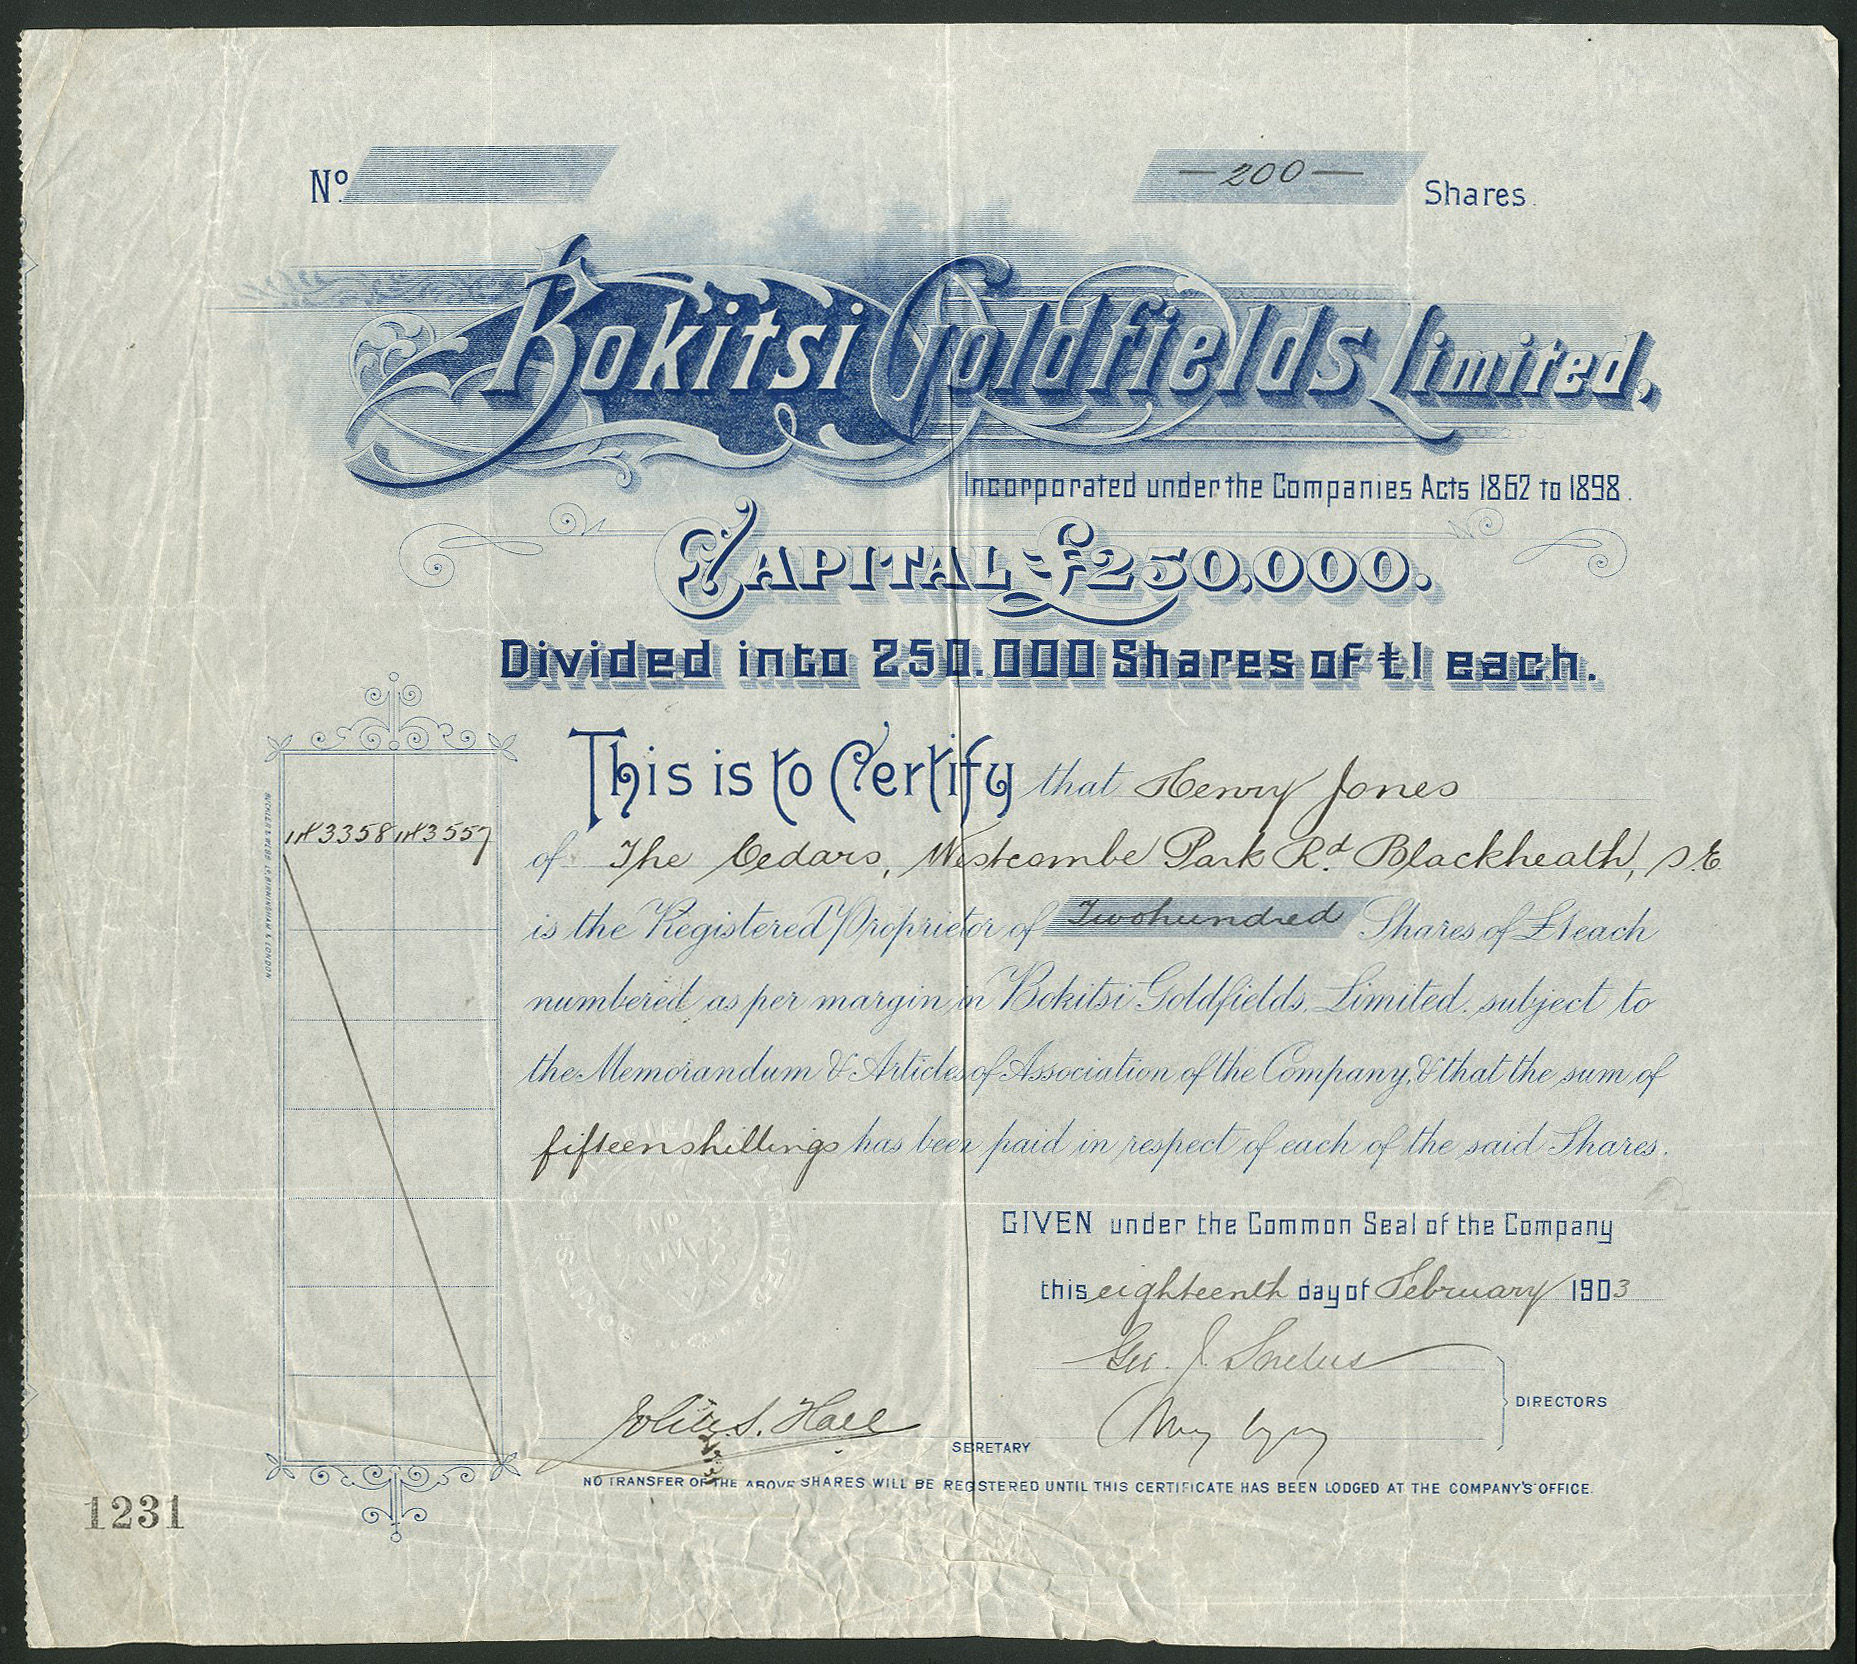 No. —200— Shares.
Bokitsi Goldfields Limited,
Incorporated under the Companies Acts 1862 to 1898.
CAPITAL £250,000.
Divided into 250.000 Shares of £1 each.
This is to Certify that Henry Jones
of The Cedars, Westcombe Park Rd. Blackheath, S.E.
is the Registered Proprietor of Two hundred Shares of £1 each
numbered as per margin in Bokitsi Goldfields, Limited, subject to
the Memorandum & Articles of Association of the Company, & that the sum of
fifteen shillings has been paid in respect of each of the said Shares.
113358 113557
GIVEN under the Common Seal of the Company
this eighteenth day of February 1903
Geo. J. Snelus
DIRECTORS
S. Hall
SECRETARY
NO TRANSFER OF THE ABOVE SHARES WILL BE REGISTERED UNTIL THIS CERTIFICATE HAS BEEN LODGED AT THE COMPANY'S OFFICE.
1231
BIRMINGHAM & LONDON